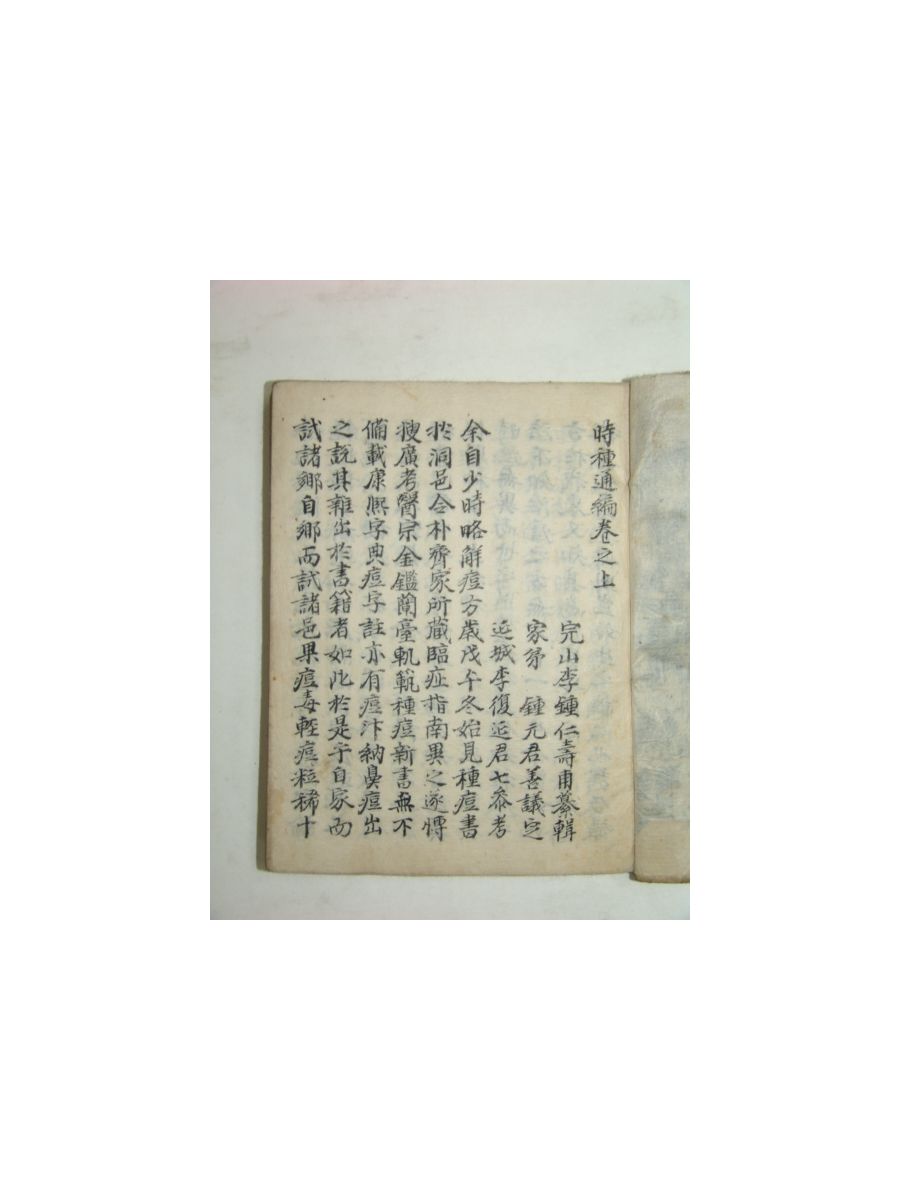 時種通編卷之上
完山李鍾仁壽甫纂輯
家弟一鍾元君善議定
延城李復延君七叅考
余自少時略解痘方歲戊午冬始見種痘書
扵洞邑仝朴齊家所藏臨症指南異之遂慱
搜廣考醫宗金鑑蘭臺軌範種痘新書無不
備載康熙字典痘字註亦有痘汁納鼻痘出
之說其雜出於書籍者如此於是乎自家而
試諸鄕自鄕而試諸邑果痘毒輕痘粒稀十